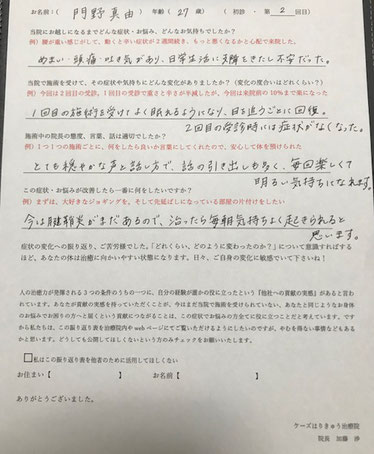 お名前:( 門野真由 ) 年齢( 27 歳) (初診・第 2 回目)
当院にお越しになるまでどんな症状・お悩み、どんなお気持ちでしたか?
例)腰が重い感じがして、動くと辛い症状が2週間続き、もっと悪くなるかと心配で来院した。
めまい・頭痛・吐き気があり、日常生活に支障をきたし不安だった。
当院で施術を受けて、その症状や気持ちもどんな変化がありましたか?(変化の度合いはどれくらい?)
例)今回は2回目の受診。1回目の受診で重さと辛さが半減したが、今回は来院前の10%まで楽になった
1回目の施術を受けてよく眠れるようになり、日を追うごとに回復。
2回目の受診時には症状がなくなった。
施術中の院長の態度、言葉、話は適切でしたか?
例)1つ1つの施術ごとに、何をしたら良いか言葉にしてくれたので、安心して体を預けられた
とても穏やかな声と話し方で、話の引き出しも多く、毎回楽しくて
明るい気持ちになれます。
この症状・お悩みが改善したら一番に何をしたいですか?
例)まずは、大好きなジョギングを、そして先延ばしになっている部屋の片付けをしたい
今は腱鞘炎がまだあるので、治ったら毎朝気持ちよく起きられると
思います。
症状の変化への振り返り、ご苦労様でした。「どれくらい、どのように変わったのか?」について意識すればする
ほど、あなたの体は治癒に向かいやすい状態になります。日々、ご自身の変化に敏感でいて下さいね!
人の治癒力が発揮される3つの条件のうちの一つに、自分の経験が誰かの役に立ったという『他社への貢献の実感』があると言わ
れています。あなたが貢献の実感を持っていただくことが、今はまだ当院で施術を受けられていない、あなたと同じようなお身体
のお悩みでお困りの方へと届くという貢献につながることは、この症状でお悩みの方全てに役に立つことだと考えています。です
から私たちは、この振り返り表を治療院内や web ページにてご覧いただけるようにしたいのですが、やむを得ない事情などもある
かと思います。どうしても公開してほしくないという方のみチェックをお願いいたします。
□私はこの振り返り表を他者のために活用してほしくない
お住まい【 】 お名前【 】
ありがとうございました。
ケーズはりきゅう治療院
院長 加藤 渉